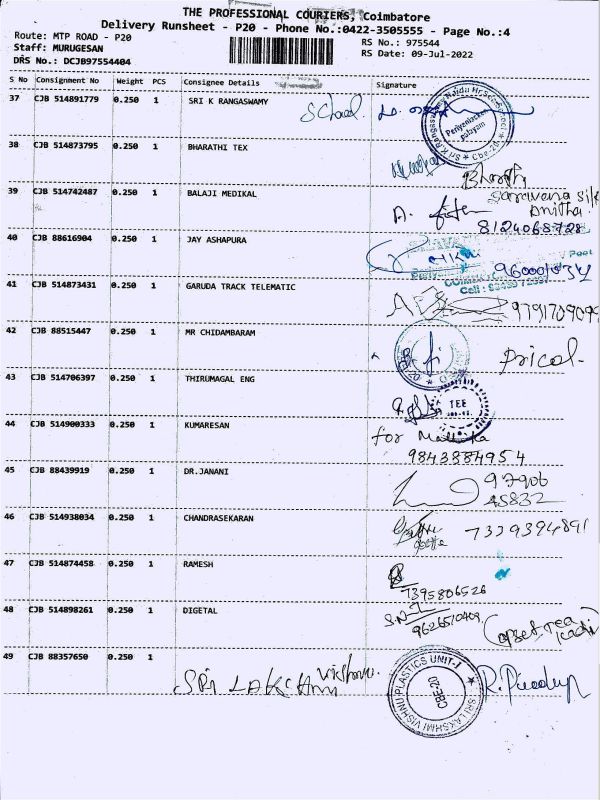 THE PROFESSIONAL COURIERS, Coimbatore
Delivery Runsheet - P20 - Phone No.:0422-3505555 - Page No.:4
Route: MTP ROAD - P20
RS No.: 975544
Staff: MURUGESAN
RS Date: 09-Jul-2022
DRS No.: DCJB97554404
S No Consignment No Weight PCS Consignee Details Signature
37 CJB 514891779 0.250 1 SRI K RANGASWAMY
38 CJB 514873795 0.250 1 BHARATHI TEX
Bharathi
39 CJB 514742487 0.250 1 BALAJI MEDIKAL
Saravana silk
Anitha
8124068728
40 CJB 88616904 0.250 1 JAY ASHAPURA
41 CJB 514873431 0.250 1 GARUDA TRACK TELEMATIC
42 CJB 88515447 0.250 1 MR CHIDAMBARAM
Pricol
43 CJB 514706397 0.250 1 THIRUMAGAL ENG
TEE
44 CJB 514900333 0.250 1 KUMARESAN
for Mallika
9843884954
45 CJB 88439919 0.250 1 DR.JANANI
97906
45832
46 CJB 514938034 0.250 1 CHANDRASEKARAN
7339394891
47 CJB 514874458 0.250 1 RAMESH
7395806526
48 CJB 514898261 0.250 1 DIGETAL
9626570409
49 CJB 88357650 0.250 1
Sri LAKSHMI Vishnu
SRI LAKSHMI VISHNU PLASTICS UNIT-I
CBE-20